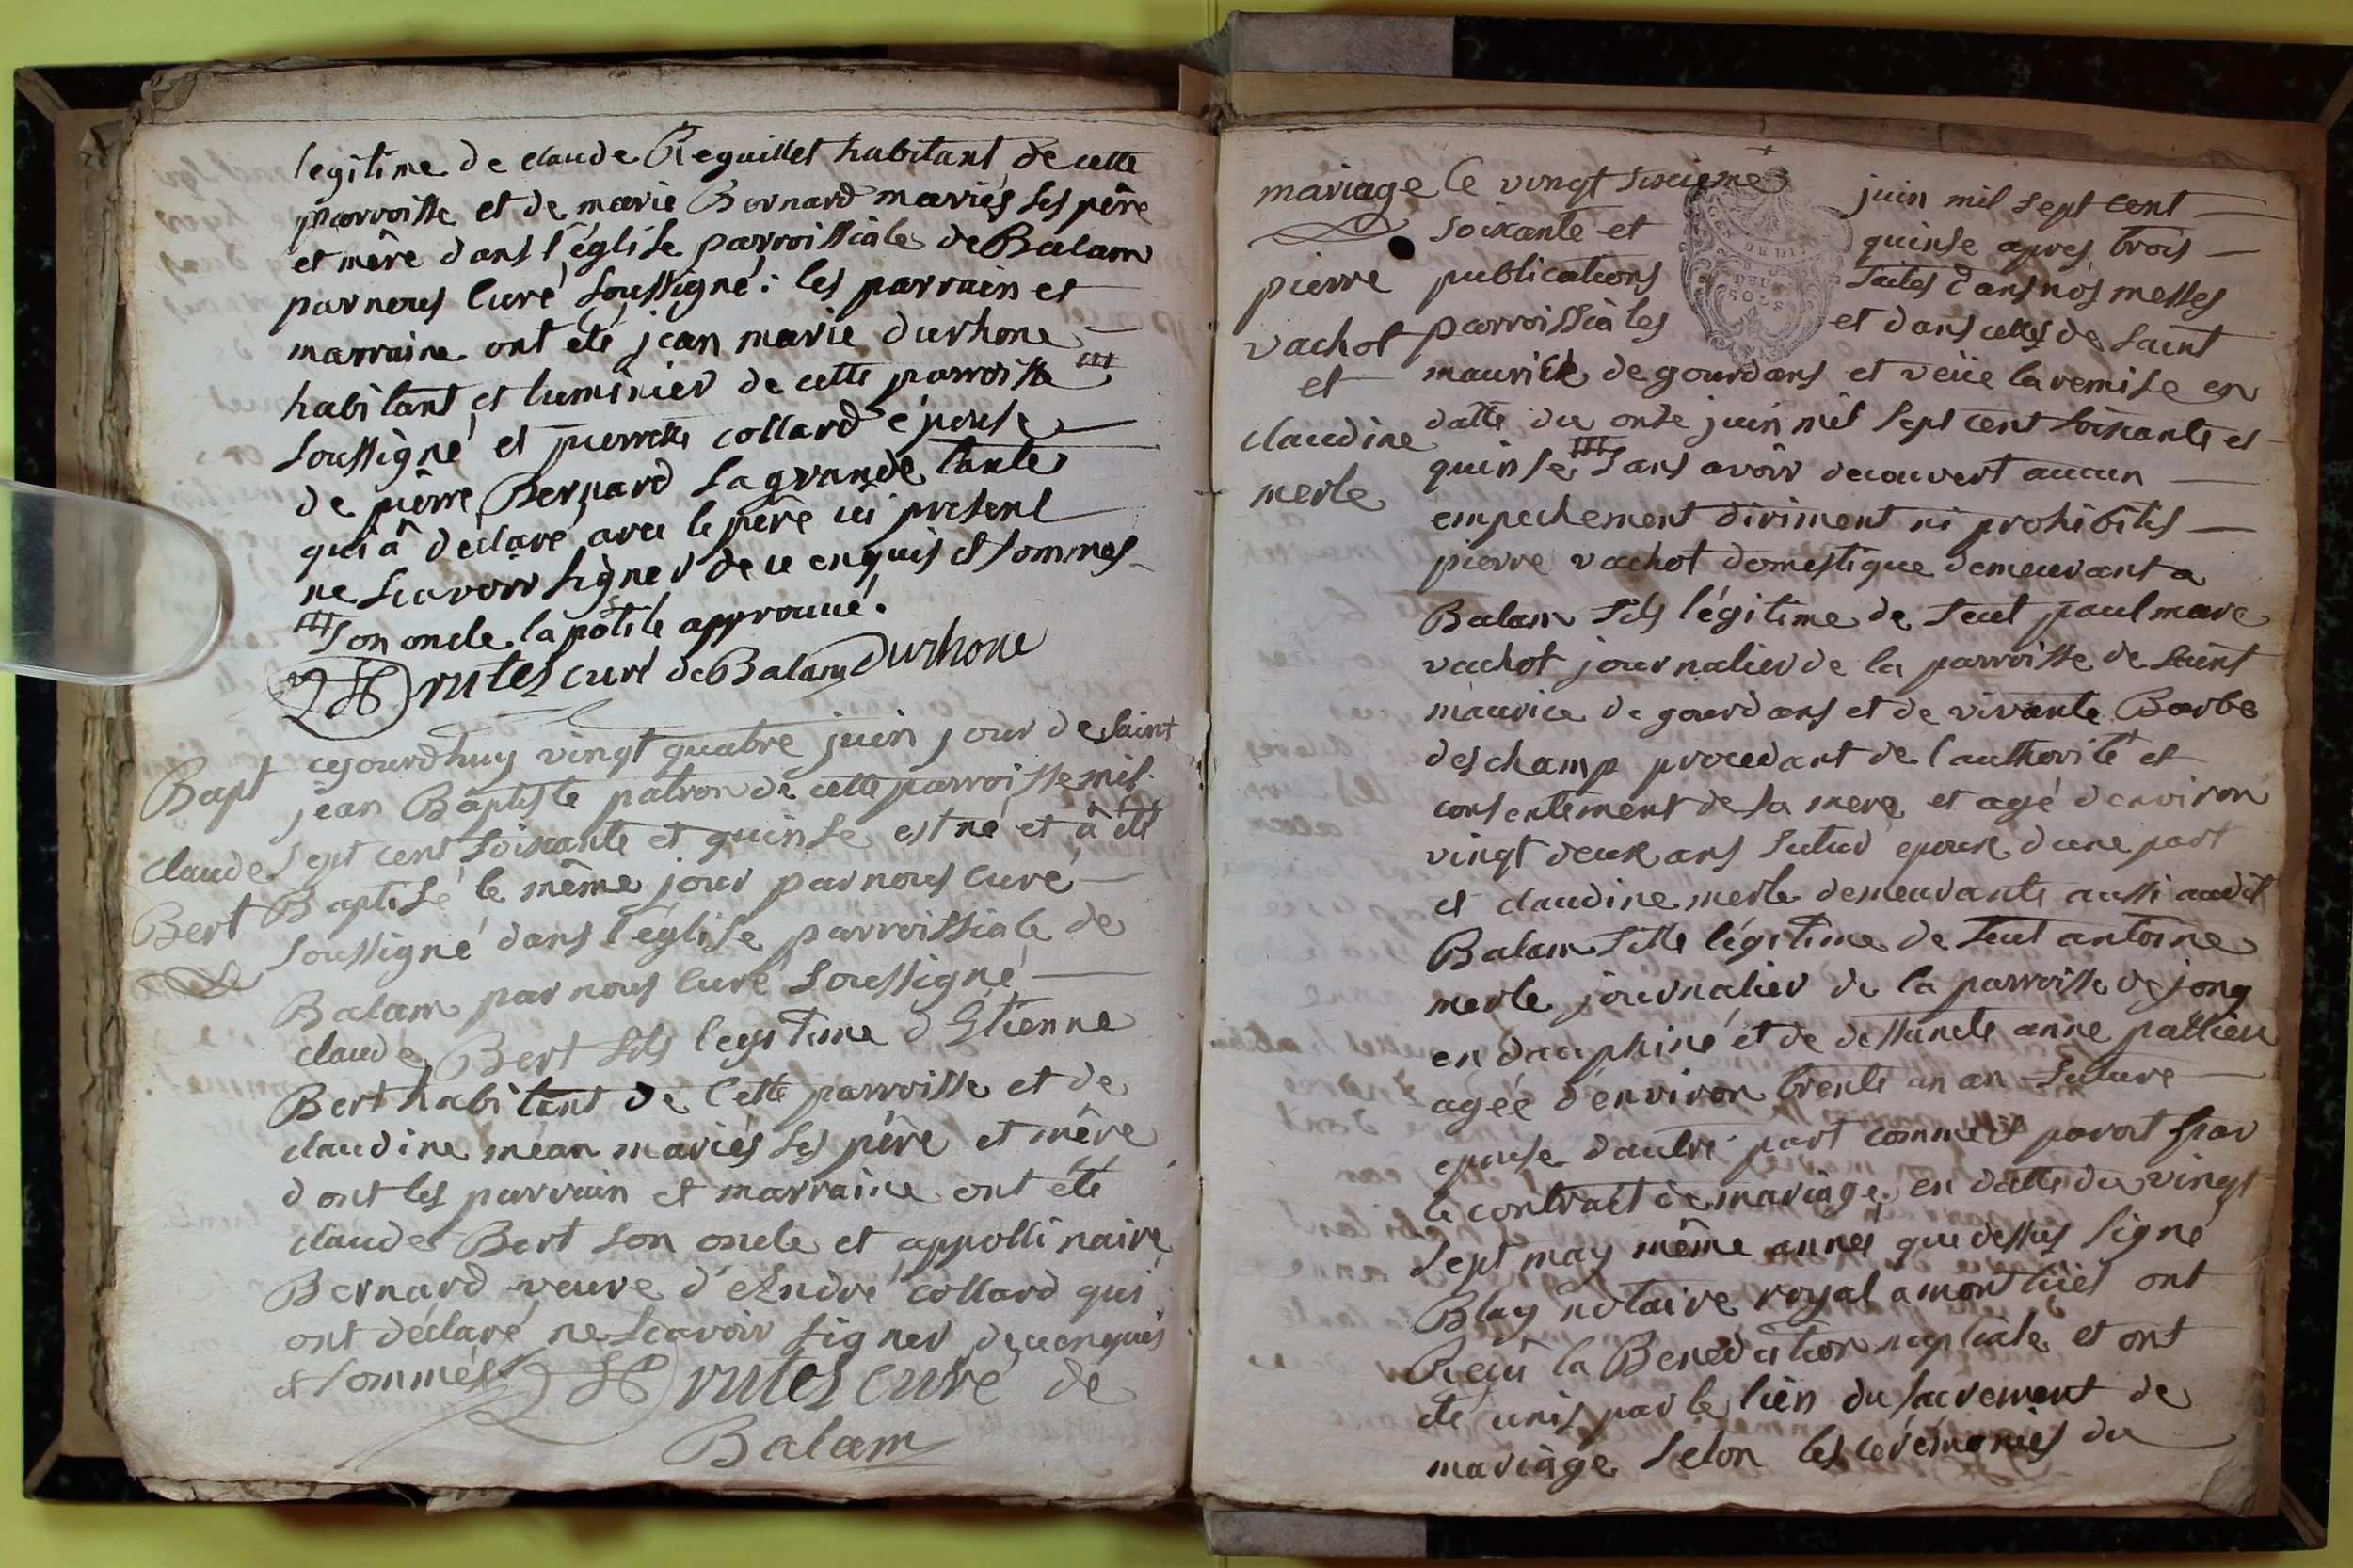 legitime de claude Reguillet habitant de cette
parroisse et de marie Bernard mariés ses père
et mère dans l'église parroissiale de Balam
par nous curé soussigné: les parrain et
marraine ont été jean marie durhone
habitant et luminier de cette parroisse
soussigné et pierrette collard épouse
de pierre Bernard sa grande tante
qui à déclaré avec le père ici present
ne sçavoir signer de ce enquis et sommes
son oncle lapotile approuué.
rutes curé de Balam Durhone
cejourdhuy vingt quatre juin jour de saint
Bapt jean Baptiste patron de cette parroisse mil
claude sept cent soixante et quinse est né et à été
Bert Baptisé le même jour par nous curé
soussigné dans l'église parroissiale de
Balam par nous curé soussigné
claude Bert fils legitime d'Etienne
Bert habitant de cette parroisse et de
claudine mean mariés ses père et mère
dont les parrain et marraine ont été
claude Bert son oncle et appollinaire
Bernard veuve d'André collard qui
ont déclaré ne sçavoir signer de ce enquis
et sommés rutes curé de
Balam
mariage le vingt sixieme juin mil sept cent
soixante et quinse apres trois
pierre publications faites dans nos messes
vachot parroissiàles et dans celles de saint
et maurice de gourdans et veüe la remise en
claudine datte du onse juin mil sept cent soixante et
quinse sans avoir decouvert aucun
merle empechement diriment ni prohibitif
pierre vachot domestique demeurant a
Balam fils légitime de feut paul marc
vachot journalier de la parroisse de saint
maurice de gourdans et de vivante Barbe
deschamp procedant de l'authorité et
consentement de sa mere et agé d'environ
vingt deux ans futur epoux d'une part
et claudine merle demeurante aussi audit
Balam fille légitime de feut antoine
merle journalier de la parroisse de jong
en dauphiné et de deffuncte anne pallieu
agée d'environ trente un an future
epouse d'autre part comme il paroit par
le contract de mariage en datte du vingt
sept may même année que dessus signé
Blay notaire royal a montluel ont
Reçu la Benediction nuptiale et ont
été unis par le lien du sacrement de
mariàge selon les cérémonies du